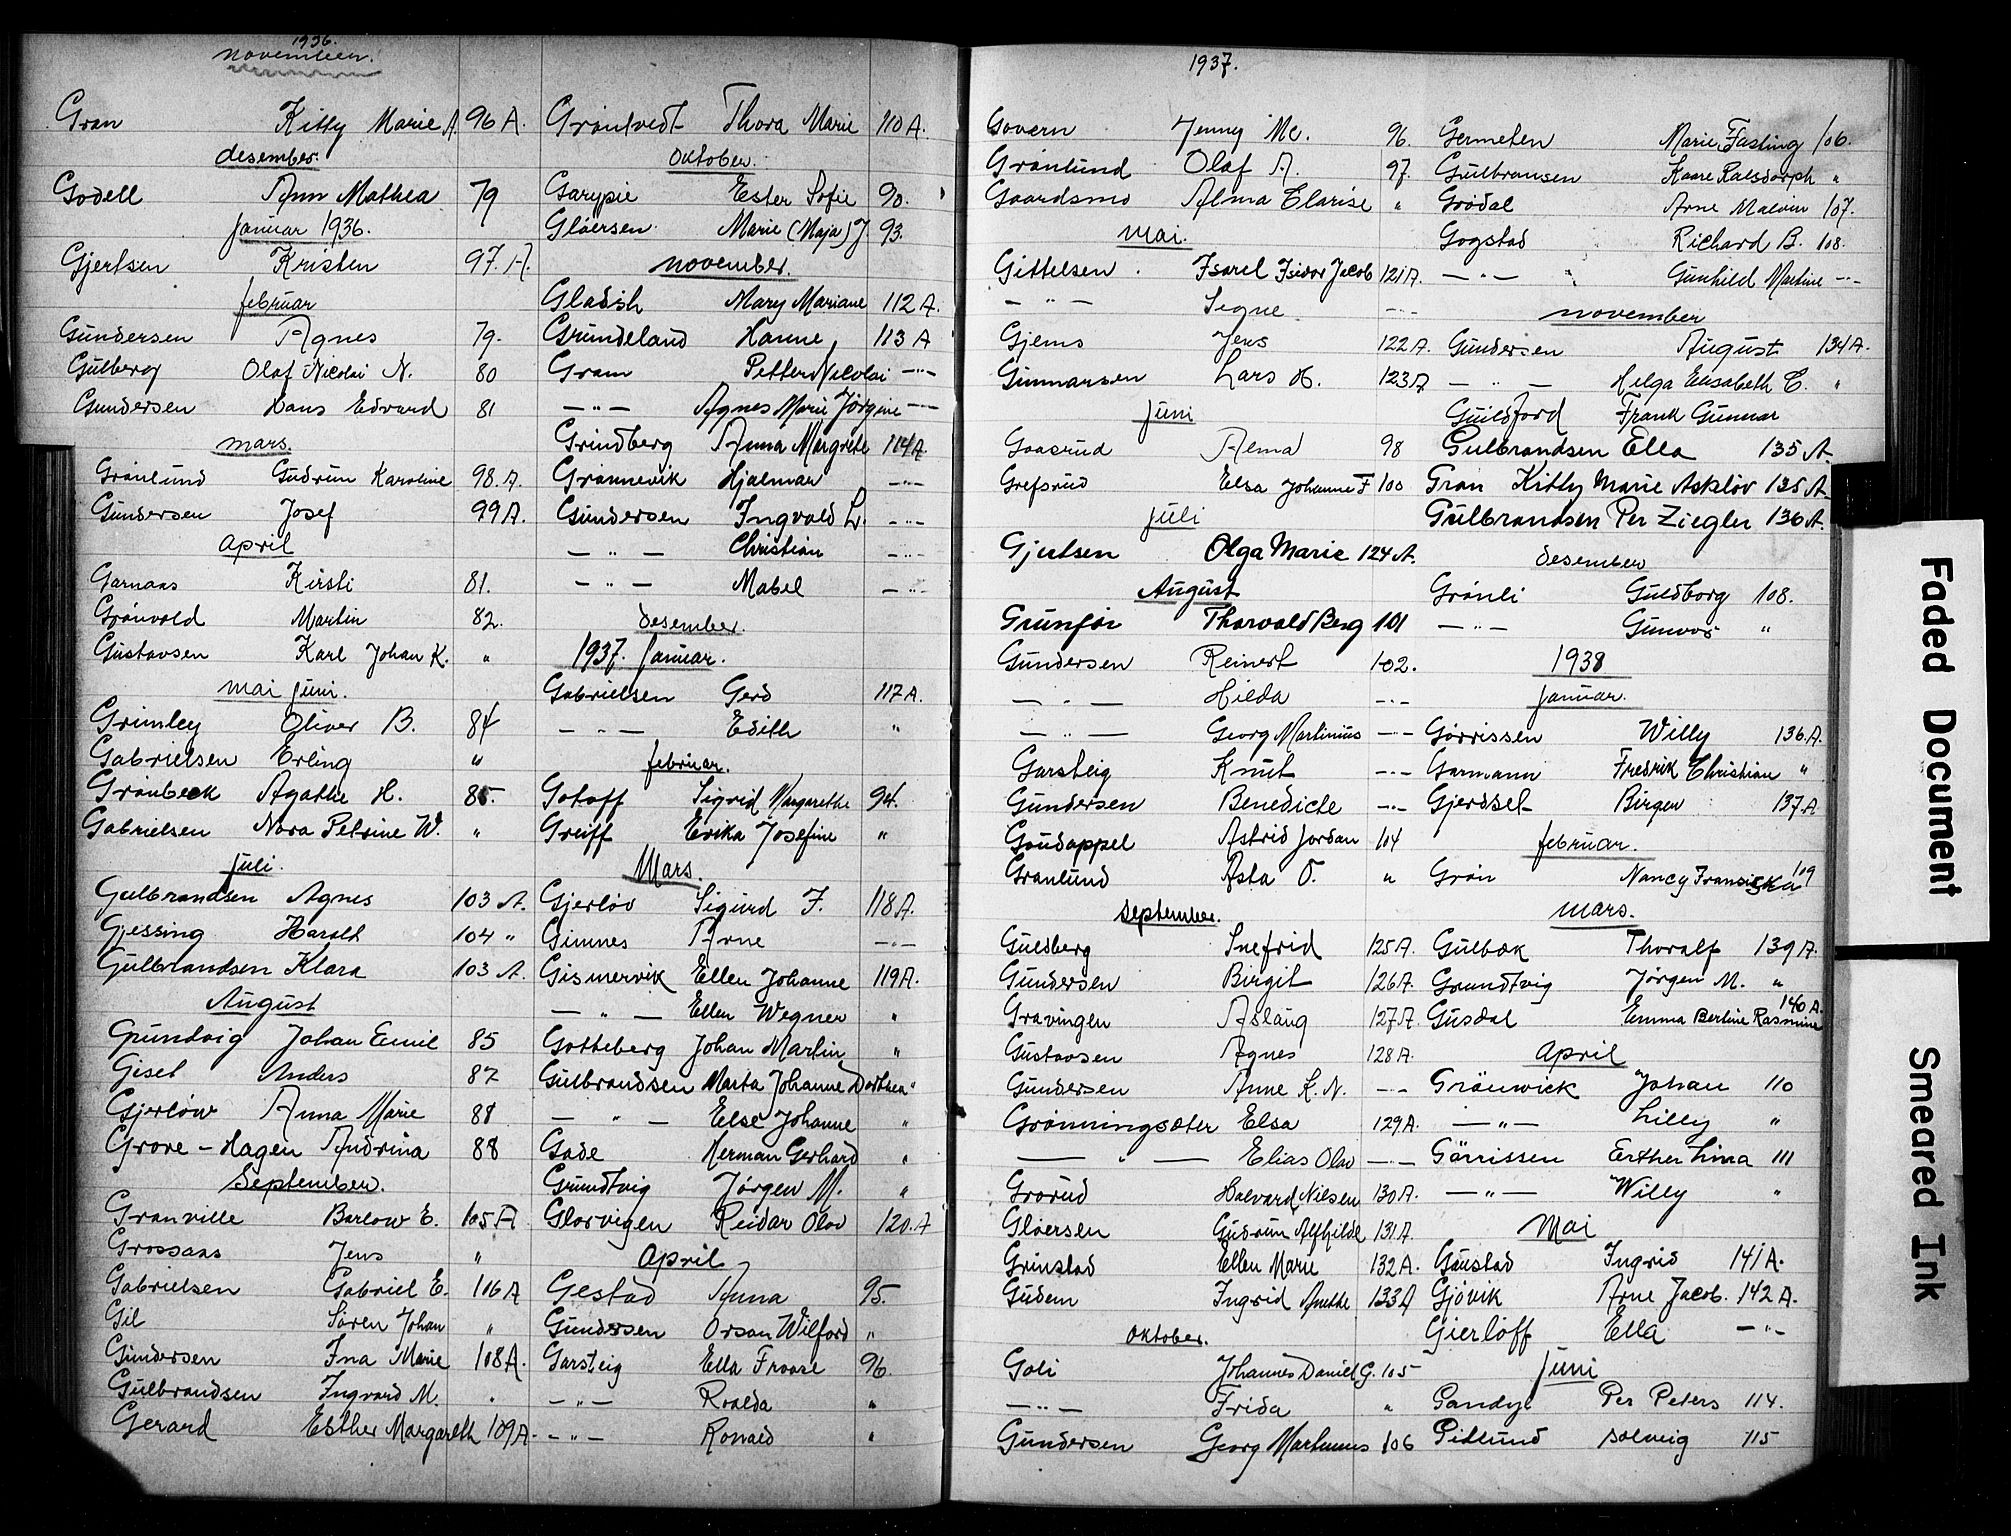 1936.
november.
Gran Kitty Marie A. 96 A.
desember.
Godell Ann Mathea 79
Januar 1936.
Gjertsen Kristen 97. A.
februar
Gundersen Agnes 79.
Gulberg Olaf Nicolai N. 80
Gundersen Hans Edvard 81
mars.
Grönlund Gudrun Karoline 98. A.
Gundersen Josef 99 A.
April
Garnaas Kirsti 81.
Grönvold Martin 82.
Gustavsen Karl Johan K. "
mai juni.
Grimley Oliver B. 84
Gabrielsen Erling "
Grönbeck Agathe H. 85.
Gabrielsen Nora Petrine W. "
juli.
Gulbrandsen Agnes 103 A.
Gjessing Harald 104 "
Gulbrandsen Klara 103 A.
August
Grundvig Johan Emil 85
Gisel Anders 87
Gjerlöw Anna Marie 88
Grove - Hagen Andrina 88
September.
Granville Barlow E. 105 A
Grossaas Jens "
Gabrielsen Gabriel E. 106 A
Gil Sören Johan "
Gundersen Ina Marie 108 A.
Gulbrandsen Ingvard M. "
Gerard Esther Margareth 109 A.
Gröntvedt Thora Marie 110 A.
Oktober.
Garypie Ester Sofie 90.
Glöersen Marie (Maja) J. 93.
november.
Gladish Mary Mariane 112 A.
Grundeland Hanne 113 A
Gram Petter Nicolai -"-
-"- Agnes Marie Jörgine -"-
Grindberg Anna Margrete 114 A.
Grönnevik Hjalmar -"-
Gundersen Ingvald L. -"-
-"- Christian -"-
-"- Mabel -"-
desember.
1937. Januar.
Gabrielsen Gerd 117 A.
-"- Edith "
februar.
Gotaff Sigrid Margarethe 94.
Greiff Erika Josefine "
Mars.
Gjerlöv Sigurd F. 118 A.
Gimnes Arne -"-
Gismervik Ellen Johanne 119 A.
-"- Ellen Wegner "
Gotteberg Johan Martin "
Gulbrandsen Marta Johanne Dorthea "
-"- Else Johanne "
Gade Herman Gerhard "
Grundtvig Jörgen M. "
Glorvigen Reidar Olav 120. A
April
Gestad Anna 95.
Gundersen Orsan Wilford "
Garsteig Ella Froase 96.
-"- Roalda "
-"- Ronald "
1937.
Govern Jenny Mc. 96.
Grönlund Olaf A. 97.
Gaardsmo Alma Clarise "
mai.
Gittelsen Isarel Isidor Jacob 121 A.
-"- Signe -"-
Gjems Jens 122 A.
Gunnarsen Lars H. 123 A
juni
Gaasrud Alma 98
Grefsrud Elsa Johanne F 100
juli
Gjertsen Olga Marie 124 A.
August
Grunför Thorvald Berg 101
Gundersen Reinert 102.
-"- Hilda -"-
-"- Georg Martinius -"-
Garsteig Knut -"-
Gundersen Benedicte -"-
Goudappel Astrid Jordan 104
Granlund Asta O. "
September.
Guldberg Snefrid 125 A.
Gundersen Birgit 126 A.
Gravingen Aslaug 127 A.
Gustavsen Agnes 128 A.
Gundersen Anne K. N. -"-
Grönningsæter Elsa 129 A.
-"- Elias Olav -"-
Grorud Halvard Nilsen 130 A.
Glöersen Gudrun Alfhilde 131 A.
Grinstad Ellen Marie 132 A.
Gudem Ingrid Anethe 133 A
Oktober.
Goli Johannes Daniel G. 105
-"- Frida "
Gundersen Georg Martinius 106
Germeten Marie Fasting 106.
Gulbransen Kaare Ralsdorph "
Grödal Arne Malvin 107.
Gogstad Richard B. 108.
-"- Gunhild Martine -"-
november
Gundersen August 134 A.
-"- Helga Elisabeth C. "
Guildford Frank Gunnar
Gulbrandsen Ella 135 A.
Gran Kitty Marie Asklöv 135 A
Gulbrandsen Per Ziegler 136 A.
desember
Grönli Guldborg 108.
-"- Gunvor "
1938
Januar.
Görrissen Willy 136 A.
Garmann Fredrik Christian "
Gjerdset Birger 137 A
februar.
Grön Nancy Fransiska 109
mars.
Gulbæk Thoralf 139 A.
Grundtvig Jörgen M. "
Gusdal Emma Bertine Rasmine 140 A.
April
Grönwick Johan 110
-"- Lilly "
Görrissen Erther Lina 111
-"- Willy "
Mai
Gaustad Ingrid 141 A.
Gjövik Arne Jacob. 142 A.
Gjerlöff Ella -"-
Juni
Gandy Per Peters 114.
Gidlund Solveig 115
Faded Document
Smeared Ink